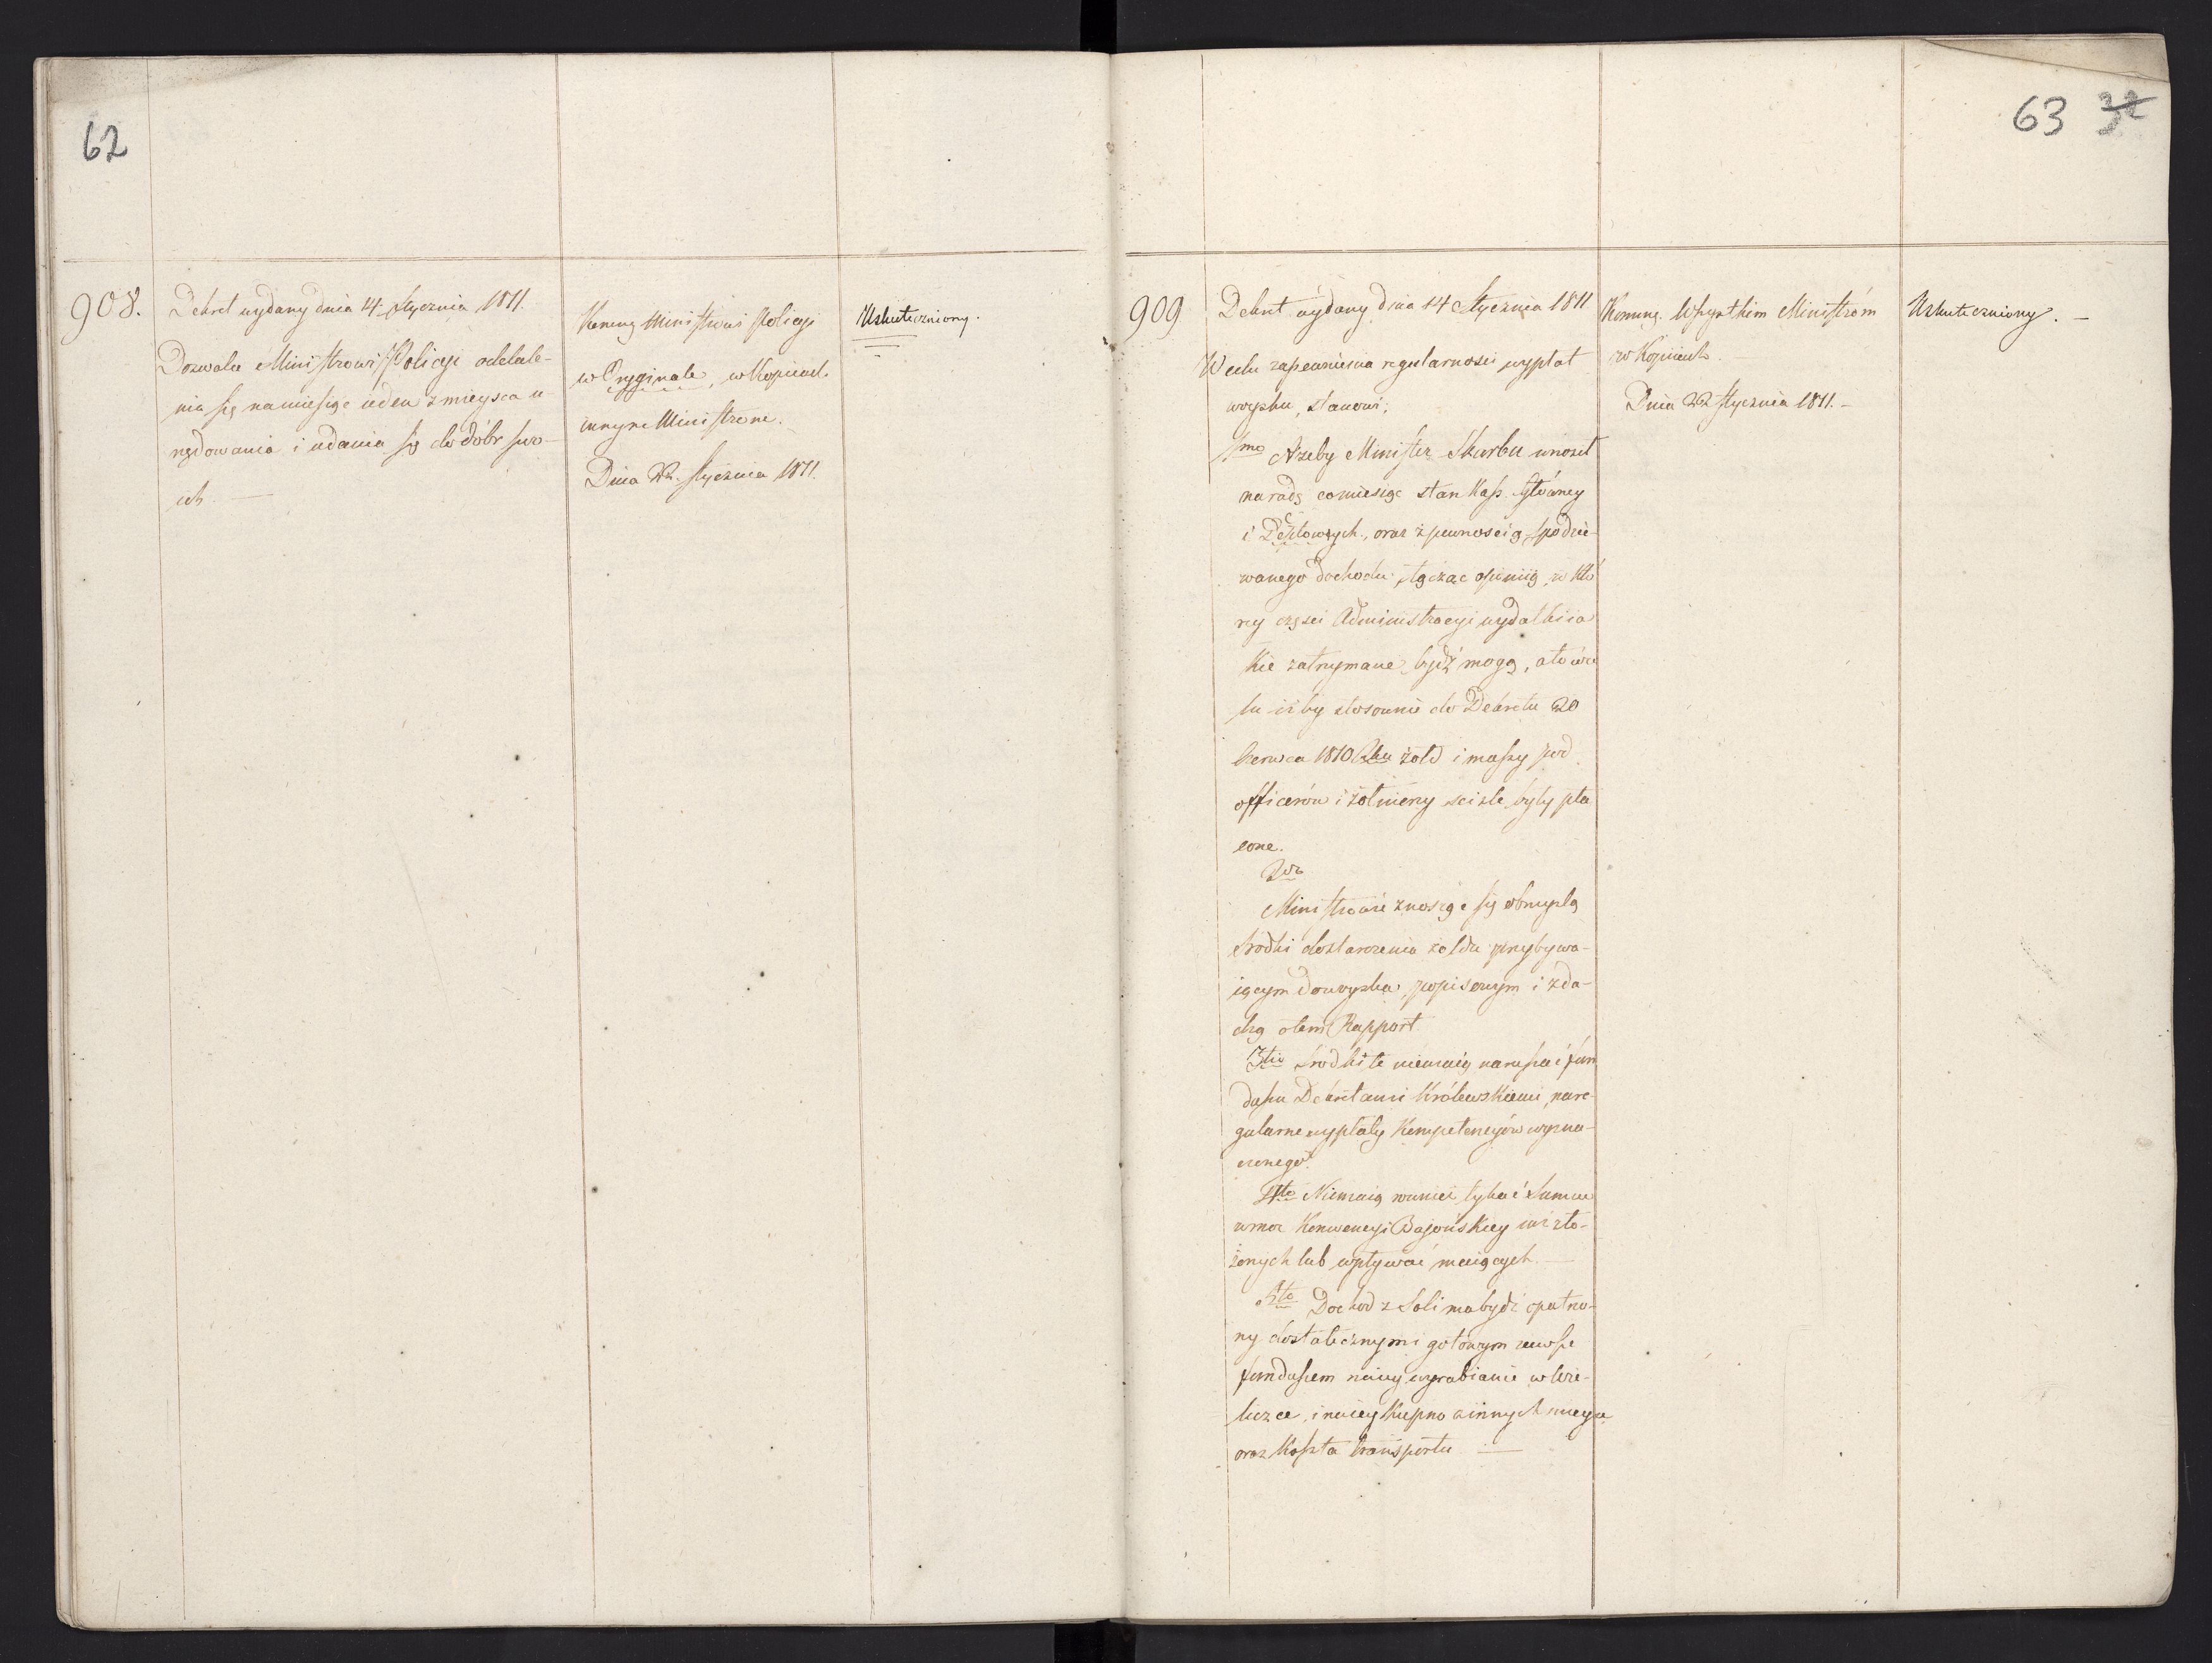 62
908.
Dekret wydany dnia 14. Stycznia 1811.
Dozwala Ministrowi Policyi oddale-
nia się na miesiąc ieden z mieysca u-
rzędowania i udania się do dóbr swo-
ich. —
Komung Ministrowi Policyi
w Oryginale, w Kopiach
innym Ministrom.
Dnia 22. Stycznia 1811.
Uskuteczniony.
63 32
909
Dekret wydany dnia 14 Stycznia 1811
W celu zapewnienia regularności wypłat
woysku, stanowi;
1mo Ażeby Minister Skarbu wnosił
na radę co miesiąc stan Kass Główney
i Deptowych, oraz z pewnością spodzie-
wanego dochodu, łącząc opinią, w któ
rey części Administracyi wydatki ia
kie zatrzymane bydź mogą, a to w ce
lu iżby stosownie do Dekretu 20
Czerwca 1810 Rku żołd i massy pod
officerów i żołnierzy ściśle były pła
cone.
2do
Ministrowie znosząc się obmyślą
środki dostarczenia żołdu przybywa-
iącym do woyska popisowym i zda-
dzą o tem Rapport.
3tio Srodki te niemaią naruszać fun
duszu Dekretami Królewskiemi, na re-
gularne wypłaty Kompetencyów wyzna-
czonego.
4to Niemaią rownież tykać Summ
w moc Konwencyi Bajońskiey iuż zło-
żonych lub wpływać maiących. —
5to Dochod z Soli ma bydź opatrzo-
ny dostatecznym i gotowym zawsze
funduszem na iey wyrabianie w Wie-
liczce, i na iey kupno w innych mieysc
oraz koszta transportu. —
Komung. Wszystkim Ministróm
w Kopiach.
Dnia 22 Stycznia 1811. —
Uskuteczniony. —